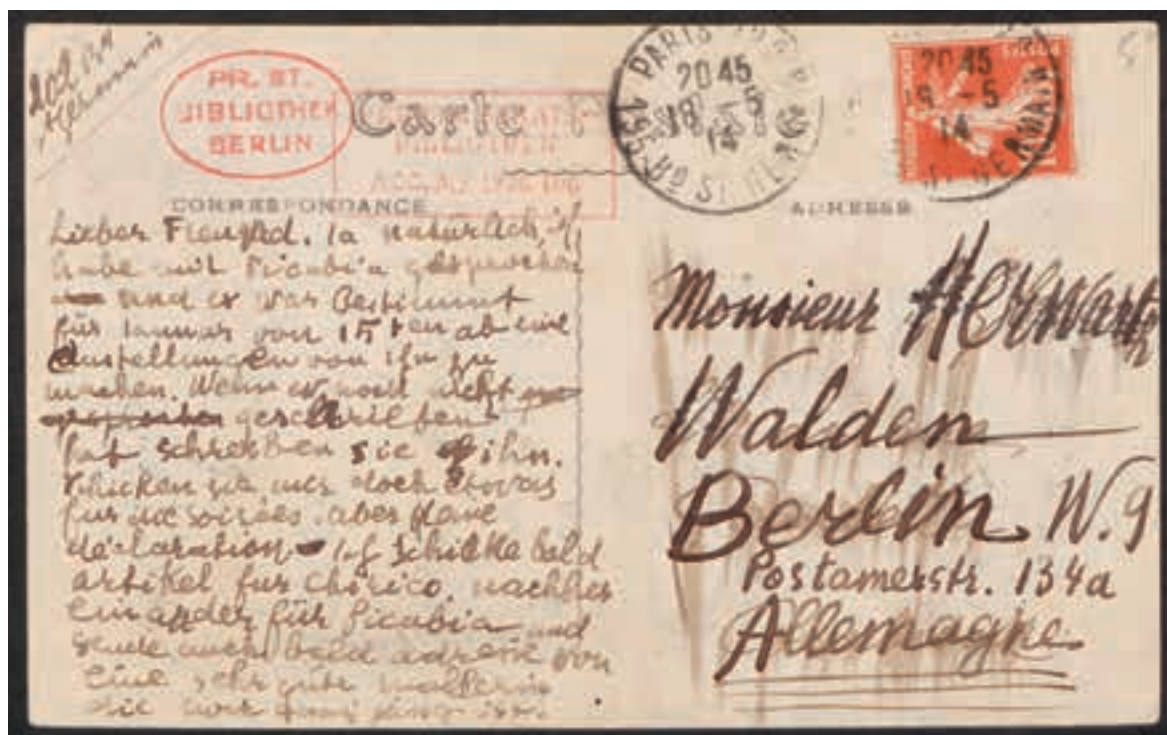 PR. ST.
BIBLIOTHEK
BERLIN
Carte P
PARIS
155 Bd ST GERMAIN
20 45
18 -5
14
20 45
18 -5
14
GERMAIN
CORRESPONDANCE
ADRESSE
Lieber Freund. Ja natürlich, ich
habe mit Picabia gesprochen
und er war bestimmt
für Januar von 15ten ab eine
Austellungen von ihn zu
machen. Wenn er noch nicht
geschrieben
hat schreiben sie ihn.
Schicken sie mir doch etwas
für die soirées. aber
déclaration. Ich schicke bald
artikel fur chirico. nachher
ein ander für Picabia und
sende auch bald adresse von
eine sehr gute malferin
die
Monsieur Herwarth
Walden
Berlin W. 9
Postamerstr. 134a
Allemagne